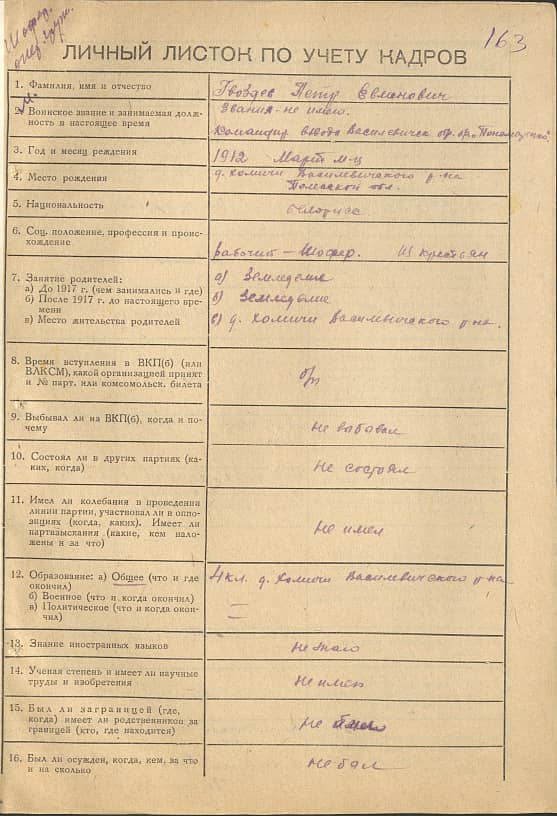 Шофер.
163
ЛИЧНЫЙ ЛИСТОК ПО УЧЕТУ КАДРОВ
1. Фамилия, имя и отчество
Гвоздев Петр Евменович
2. Воинское звание и занимаемая долж-
ность в настоящее время
Звания - не имею.
Командир взвода Василевичск
3. Год и месяц рождения
1912 Март м-ц
4. Место рождения
д. Хомичи Василевичского р-на
Полесской обл.
5. Национальность
белорус
6. Соц. положение, профессия и проис-
хождение
рабочий - Шофер. Из крестьян
7. Занятие родителей:
а) До 1917 г. (чем занимались и где)
б) После 1917 г. до настоящего вре-
мени
в) Место жительства родителей
а) Земледелие
в) Земледелие
с) д. Хомичи Василевичского р-на.
8. Время вступления в ВКП(б) (или
ВЛКСМ), какой организацией принят
и № парт. или комсомольск. билета
б/п
9. Выбывал ли из ВКП(б), когда и по-
чему
не вабавал
10. Состоял ли в других партиях (ка-
ких, когда)
Не состоял
11. Имел ли колебания в проведении
линии партии, участвовал ли в оппо-
зициях (когда, каких). Имеет ли
партвзыскания (какие, кем нало-
жены и за что)
Не имел
12. Образование: а) Общее (что и где
окончил)
б) Военное (что и когда окончил)
в) Политическое (что и когда окон-
чил)
4 кл. д. Хомичи Василевичского р-на
13. Знание иностранных языков
не знаю
14. Ученая степень и имеет ли научные
труды и изобретения
Не имею
15. Был ли заграницей (где,
когда) имеет ли родственников за
границей (кто, где находится)
Не
16. Был ли осужден, когда, кем, за что
и на сколько
Не бал